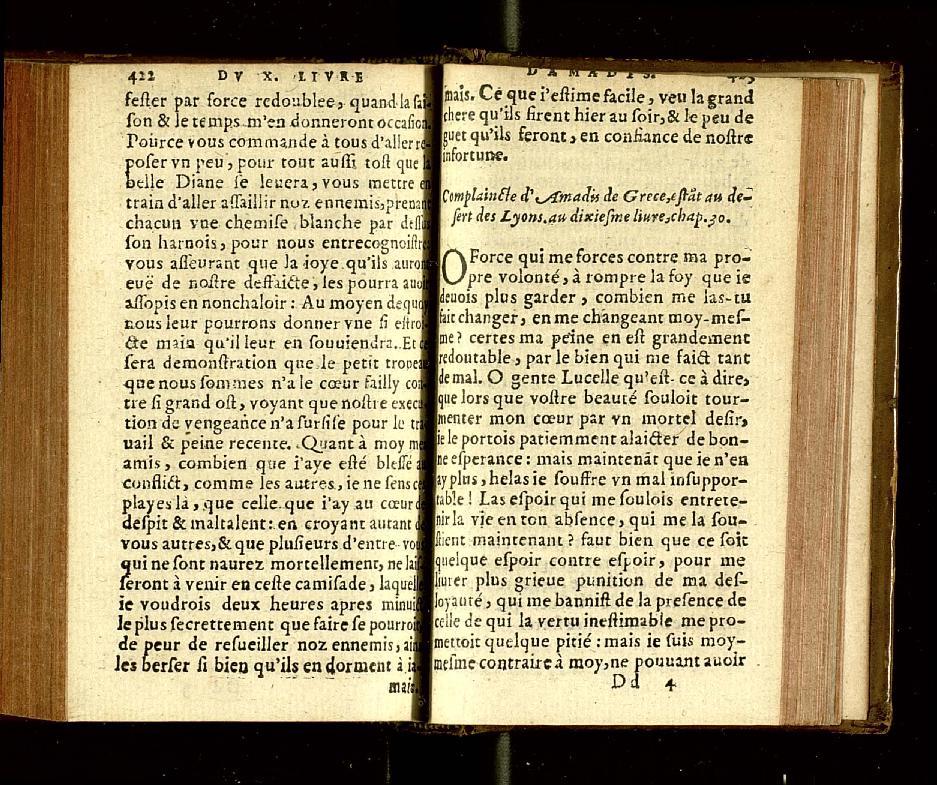 422 DV X. LIVRE
fester par force redoublee, quand la sai-
son & le temps m'en donneront occasion.
Pource vous commande à tous d'aller re-
poser vn peu, pour tout aussi tost que la
belle Diane se leuera, vous mettre en
train d'aller assaillir noz ennemis, prenant
chacun vne chemise blanche par dessus
son harnois, pour nous entrecognoistre
vous asseurant que la ioye qu'ils auront
euë de nostre deffaicte, les pourra auoir
assopis en nonchaloir: Au moyen dequoy
nous leur pourrons donner vne si estroi-
cte main qu'il leur en souuiendra. Et ce
sera demonstration que le petit tropeau
que nous sommes n'a le cœur failly con-
tre si grand ost, voyant que nostre execu-
tion de vengeance n'a sursise pour le tra-
uail & peine recente. Quant à moy mes
amis, combien que i'aye esté blessé au
conflict, comme les autres, ie ne sens ces
playes là, que celle que i'ay au cœur de
despit & maltalent: en croyant autant de
vous autres, & que plusieurs d'entre-vous
qui ne sont naurez mortellement, ne lais-
seront à venir en ceste camisade, laquelle
ie voudrois deux heures apres minuict
le plus secrettement que faire se pourroit
de peur de resueiller noz ennemis, ains
les berser si bien qu'ils en dorment à ia-
mais.
D'AMADIS. 423
mais. Ce que i'estime facile, veu la grand
chere qu'ils firent hier au soir, & le peu de
guet qu'ils feront, en confiance de nostre
infortune.
Complaincte d'Amadis de Grece, estãt au de-
sert des Lyons. au dixiesme liure, chap. 30.
O Force qui me forces contre ma pro-
pre volonté, à rompre la foy que ie
deuois plus garder, combien me las-tu
fait changer, en me changeant moy-mes-
me? certes ma peine en est grandement
redoutable, par le bien qui me faict tant
de mal. O gente Lucelle qu'est-ce à dire,
que lors que vostre beauté souloit tour-
menter mon cœur par vn mortel desir,
ie le portois patiemment alaicter de bon-
ne esperance: mais maintenãt que ie n'en
ay plus, helas ie souffre vn mal insuppor-
table! Las espoir qui me soulois entrete-
nir la vie en ton absence, qui me la sou-
stient maintenant? faut bien que ce soit
quelque espoir contre espoir, pour me
liurer plus grieue punition de ma des-
loyauté, qui me bannist de la presence de
celle de qui la vertu inestimable me pro-
mettoit quelque pitié: mais ie suis moy-
mesme contraire à moy, ne pouuant auoir
Dd 4